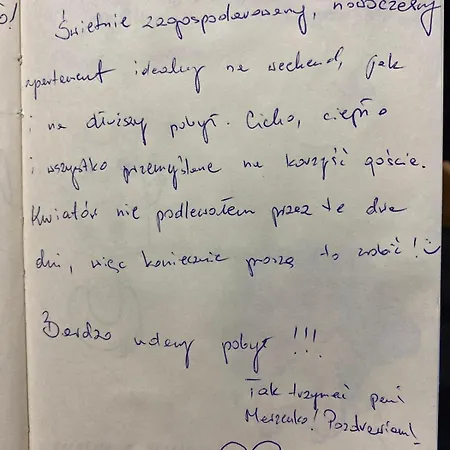 Świetnie zagospodarowany, nowoczesny
apartament idealny na weekend, jak
i na dłuższy pobyt. Cicho, ciepło
i wszystko przemyślane na korzyść gościa.
Kwiatów nie podlewałem przez te dwa
dni, więc koniecznie proszę to zrobić! :)
Bardzo udany pobyt !!!
Tak trzymać pani
Pozdrawiam!